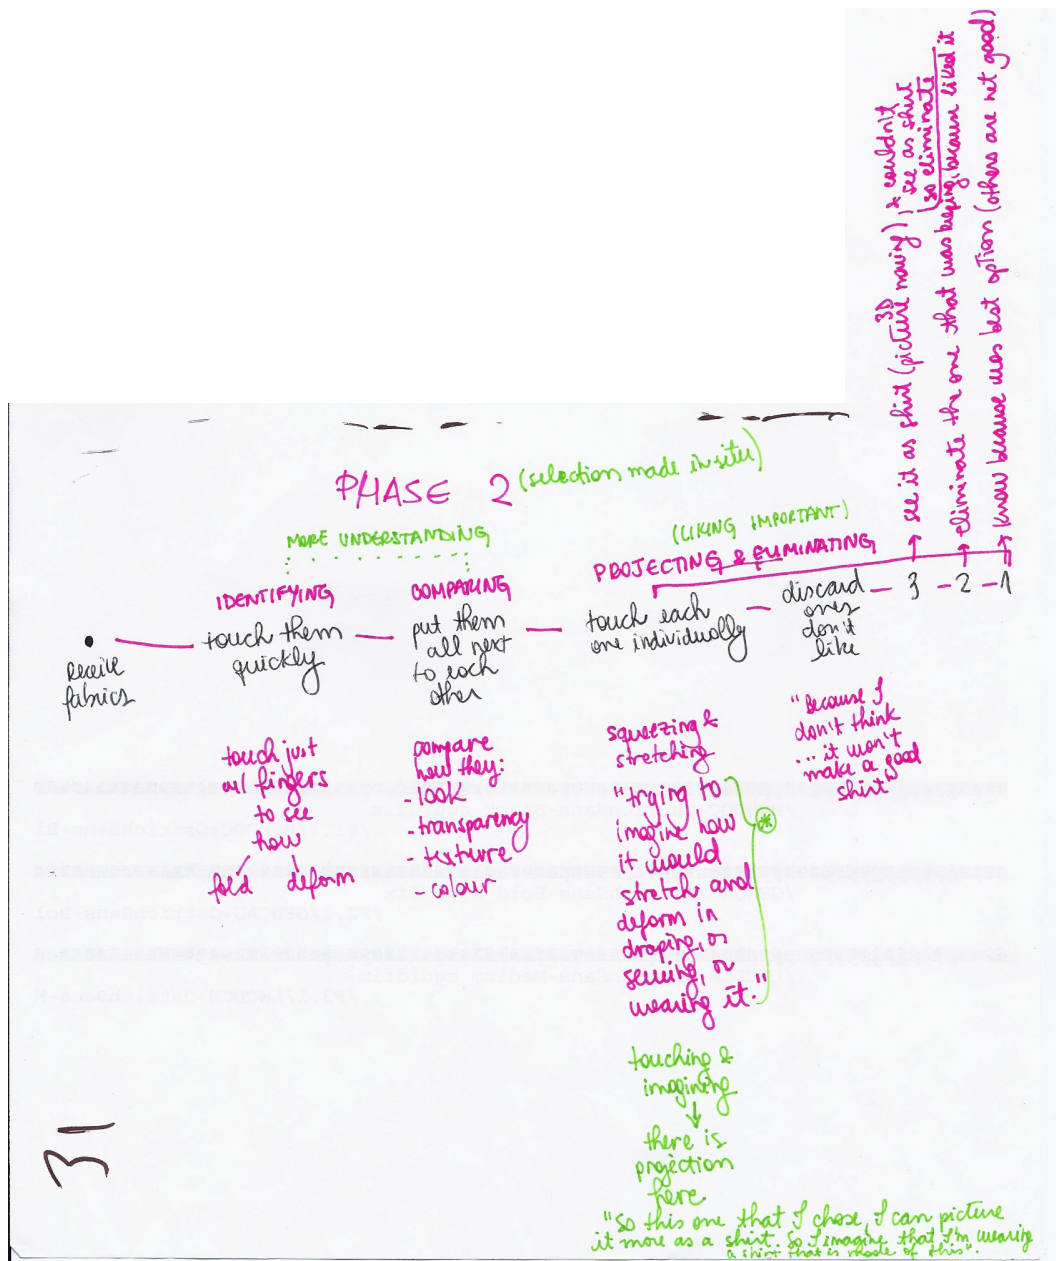 PHASE 2 (selection made in situ)
MORE UNDERSTANDING
(LIKING IMPORTANT)
IDENTIFYING
COMPARING
PROJECTING & ELIMINATING
receive
fabrics
touch them
quickly
put them
all next
to each
other
touch each
one individually
discard
ones
don't
like
3 - 2 - 1
see it as shirt (picture 3D moving), & couldn't
see as shirt
so eliminate
eliminate the one that was keeping, because liked it
know because was best option (others are not good)
touch just
w/ fingers
to see
how
fold deform
compare
how they:
- look
- transparency
- texture
- colour
squeezing &
stretching
"trying to
imagine how
it would
stretch and
deform in
draping, or
sewing, or
wearing it."
*
"Because I
don't think
... it won't
make a good
shirt
touching &
imagining
there is
projection
here
"So this one that I chose, I can picture
it more as a shirt. So I imagine that I'm wearing
a shirt that is made of this".